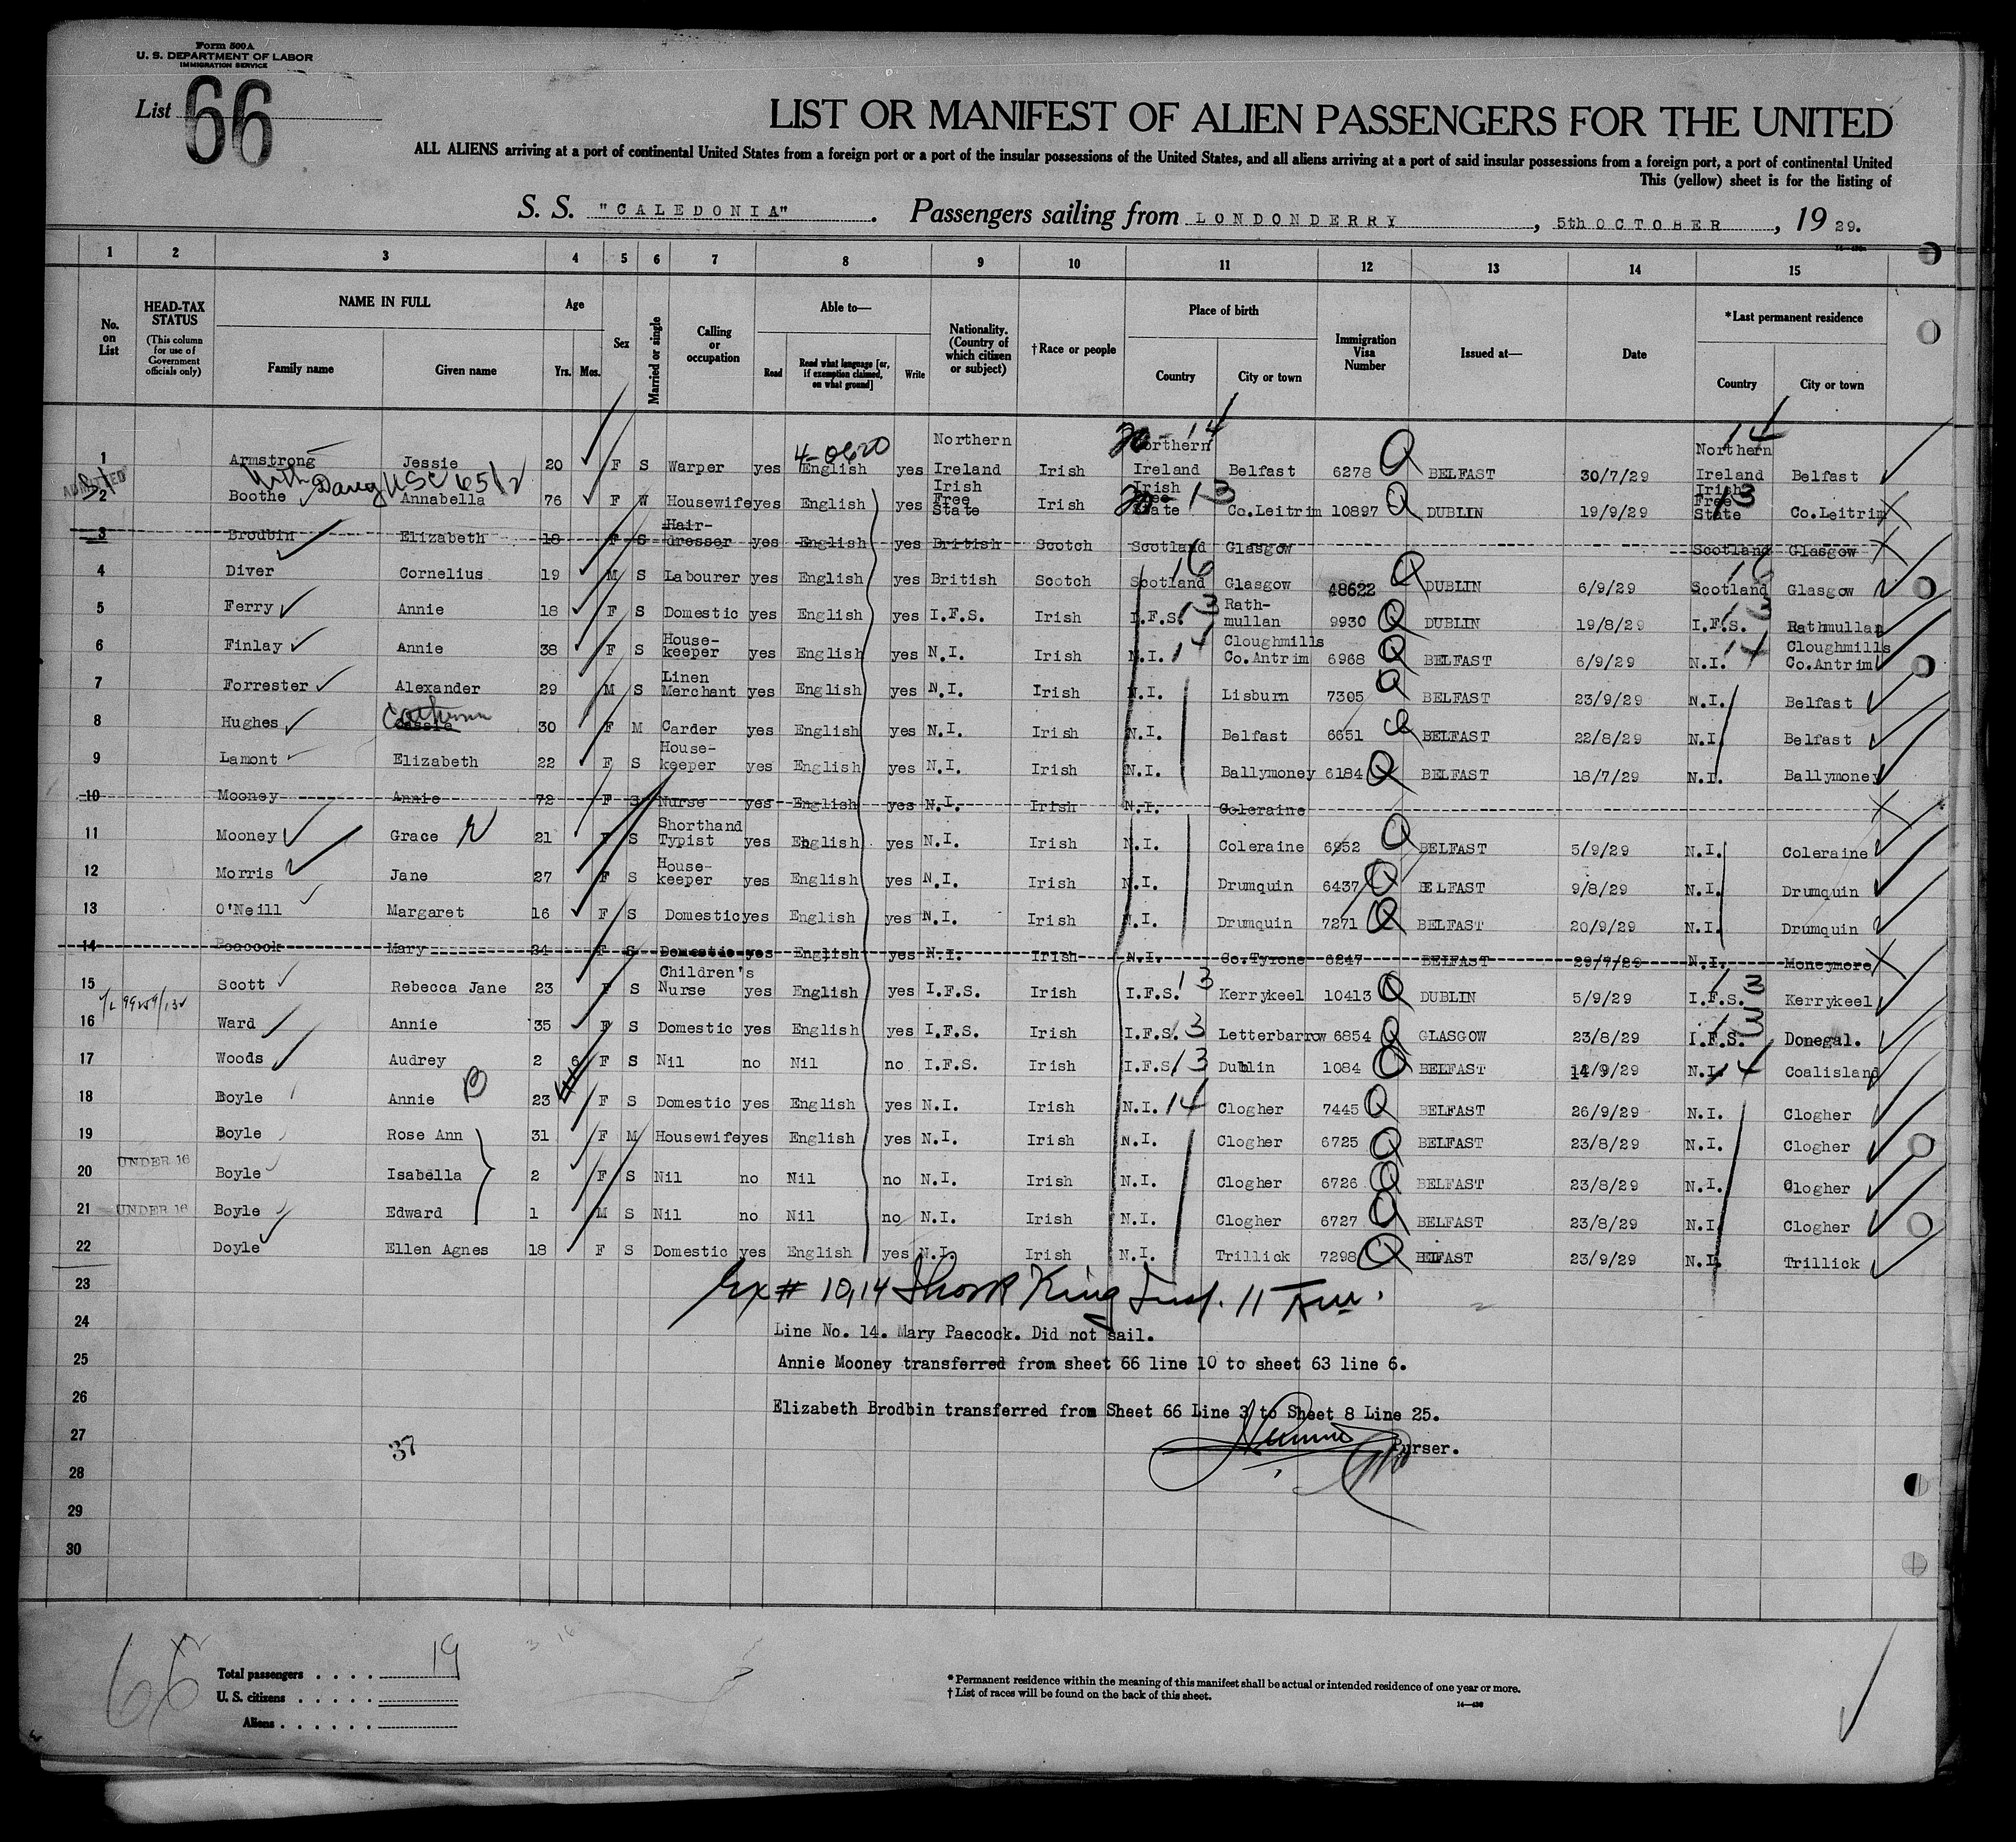 Form 500A
U. S. DEPARTMENT OF LABOR
IMMIGRATION SERVICE
List 66
LIST OR MANIFEST OF ALIEN PASSENGERS FOR THE UNITED
ALL ALIENS arriving at a port of continental United States from a foreign port or a port of the insular possessions of the United States, and all aliens arriving at a port of said insular possessions from a foreign port, a port of continental United
This (yellow) sheet is for the listing of
S. S. "CALEDONIA". Passengers sailing from LONDONDERRY, 5th OCTOBER, 19 29.
1 2 3 4 5 6 7 8 9 10 11 12 13 14 15
No. on List HEAD-TAX STATUS (This column for use of Government officials only) NAME IN FULL Family name Given name Age Yrs. Mos. Sex Married or single Calling or occupation Able to— Read Read what language [or, if exemption claimed, on what ground] Write Nationality. (Country of which citizen or subject) †Race or people Place of birth Country City or town Immigration Visa Number Issued at— Date *Last permanent residence Country City or town
4-0620 20-14 14
1 Armstrong Jessie 20 F S Warper yes English yes Northern Ireland Irish Northern Ireland Belfast 6278 BELFAST 30/7/29 Northern Ireland Belfast
ADMITTED With Daug USC 65/2
2 Boothe Annabella 76 F W Housewife yes English yes Irish Free State Irish Irish Free State 13 Co.Leitrim 10897 DUBLIN 19/9/29 Irish Free State 13 Co.Leitrim
3 Brodbin Elizabeth 18 F S Hair-dresser yes English yes British Scotch Scotland Glasgow Scotland Glasgow
4 Diver Cornelius 19 M S Labourer yes English yes British Scotch Scotland 16 Glasgow 48622 DUBLIN 6/9/29 Scotland 16 Glasgow
5 Ferry Annie 18 F S Domestic yes English yes I.F.S. Irish I.F.S. 13 Rath-mullan 9930 DUBLIN 19/8/29 I.F.S. 13 Rathmullan
6 Finlay Annie 38 F S House-keeper yes English yes N.I. Irish N.I. 14 Cloughmills Co.Antrim 6968 BELFAST 6/9/29 N.I. 14 Cloughmills Co.Antrim
7 Forrester Alexander 29 M S Linen Merchant yes English yes N.I. Irish N.I. Lisburn 7305 BELFAST 23/9/29 N.I. Belfast
8 Hughes Cassie 30 F M Carder yes English yes N.I. Irish N.I. Belfast 6651 BELFAST 22/8/29 N.I. Belfast
9 Lamont Elizabeth 22 F S House-keeper yes English yes N.I. Irish N.I. Ballymoney 6184 BELFAST 18/7/29 N.I. Ballymoney
10 Mooney Annie 72 F S Nurse yes English yes N.I. Irish N.I. Coleraine
11 Mooney Grace 21 F S Shorthand Typist yes English yes N.I. Irish N.I. Coleraine 6952 BELFAST 5/9/29 N.I. Coleraine
12 Morris Jane 27 F S House-keeper yes English yes N.I. Irish N.I. Drumquin 6437 BELFAST 9/8/29 N.I. Drumquin
13 O'Neill Margaret 16 F S Domestic yes English yes N.I. Irish N.I. Drumquin 7271 BELFAST 20/9/29 N.I. Drumquin
14 Peacock Mary 24 F S Domestic yes English yes N.I. Irish N.I. Co.Tyrone 6247 BELFAST 29/7/29 N.I. Moneymore
15 Scott Rebecca Jane 23 F S Children's Nurse yes English yes I.F.S. Irish I.F.S. 13 Kerrykeel 10413 DUBLIN 5/9/29 I.F.S. 13 Kerrykeel
16 Ward Annie 35 F S Domestic yes English yes I.F.S. Irish I.F.S. 13 Letterbarrow 6854 GLASGOW 23/8/29 I.F.S. 13 Donegal.
17 Woods Audrey 2 6 F S Nil no Nil no I.F.S. Irish I.F.S. 13 Dublin 1084 BELFAST 14/9/29 N.I. 14 Coalisland
18 Boyle Annie 23 F S Domestic yes English yes N.I. Irish N.I. 14 Clogher 7445 BELFAST 26/9/29 N.I. Clogher
19 Boyle Rose Ann 31 F M Housewife yes English yes N.I. Irish N.I. Clogher 6725 BELFAST 23/8/29 N.I. Clogher
UNDER 16
20 Boyle Isabella 2 F S Nil no Nil no N.I. Irish N.I. Clogher 6726 BELFAST 23/8/29 N.I. Clogher
21 UNDER 16 Boyle Edward 1 M S Nil no Nil no N.I. Irish N.I. Clogher 6727 BELFAST 23/8/29 N.I. Clogher
22 Doyle Ellen Agnes 18 F S Domestic yes English yes N.I. Irish N.I. Trillick 7298 BELFAST 23/9/29 N.I. Trillick
23 Ex # 10,14 King Insp.
24 Line No. 14. Mary Paecock. Did not sail.
25 Annie Mooney transferred from sheet 66 line 10 to sheet 63 line 6.
26 Elizabeth Brodbin transferred from Sheet 66 Line 3 to Sheet 8 Line 25.
27 37 Purser.
28
29
30
66
Total passengers . . . . 19
U. S. citizens . . . . .
Aliens . . . . . .
* Permanent residence within the meaning of this manifest shall be actual or intended residence of one year or more.
† List of races will be found on the back of this sheet.
14—430